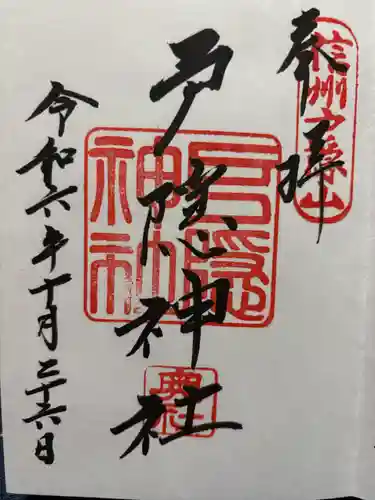 奉拝
信州戸隠山
戸隠神社
戸隠神社
奥社
令和六年十月二十六日